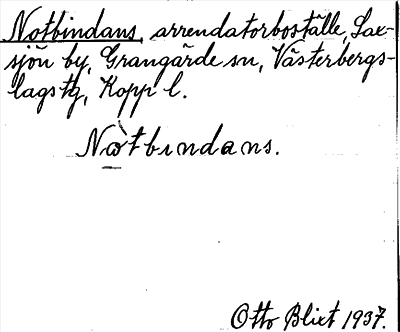 Notbindans, arrendatorboställe, Sax-
sjön by, Grangärde sn, Västerbergs-
lags tg, Kopp l.
Nòtbındans.
Otto Blixt 1937.